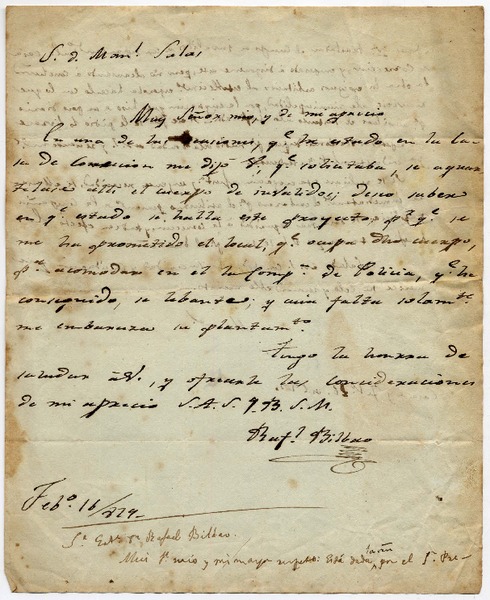 S. D. Man.l Salas
Muy Señor mio, y de mi aprecio
En una de las ocasiones q.e he estado en la Ca
sa de Correccion me dijo V, q.e solicitaba, se aquar
telase alli el cuerpo de inbalidos; deseo saber
en q.e estado se halla este proyecto p.r q.e se
me ha prometido el local, q.e ocupa dho cuerpo,
p.a acomodar en el la Comp.a de Policia, q.e he
conseguido, se lebante; y cuia falta solam.te
me embaraza su plantam.to
Tengo la honrra de
saludar á V., y ofrecerle las consideraciones
de mi aprecio S.A.S.Q.B.S.M.
Raf.l Bilbao
Feb.o 16/824-
S.r D.n Rafael Bilbao.
Mui S.r mio y mi mayor respeto: Está dada por el S.r